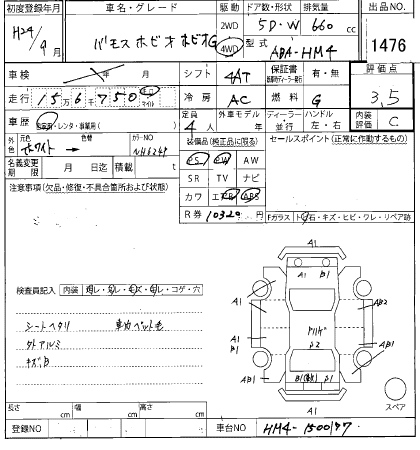 初度登録年月 車名・グレード 駆動 ドア数・形状 排気量 出品NO.
H24/9月 バモス ホビオ ホビオG 2WD 4WD 5D・W 660 cc
型式 ABA-HM4 1476
車検 年 月 シフト 4AT 保証書 有・無 評価点
走行 15万6千750 キロ マイル 冷房 AC 燃料 G 3.5
車歴 自家用・レンタ・事業用( ) 定員 4人 外車モデル 年 ディーラー 並行 ハンドル 左・右 内装評価 C
外色 元色 ホワイト 色替 カラーNO NH624P 装備品(純正品に限る) セールスポイント(正常に作動するもの)
名義変更期限 月 日迄 積載 t PS PW AW
注意事項(欠品・修復・不具合箇所および状態) SR TV ナビ
カワ エアB ABS
R券 10320 Fガラス トビ石・キズ・ヒビ・ワレ・リペア跡
検査員記入 内装
シートヘタリ 車内ペット毛
外アルミ
キズ凹
A1
A1 B1
A1 AB2
A1
B1
AB1 AB1
A1
スペア
長さ cm 幅 cm 高さ cm
登録NO 車台NO HM4-1500177